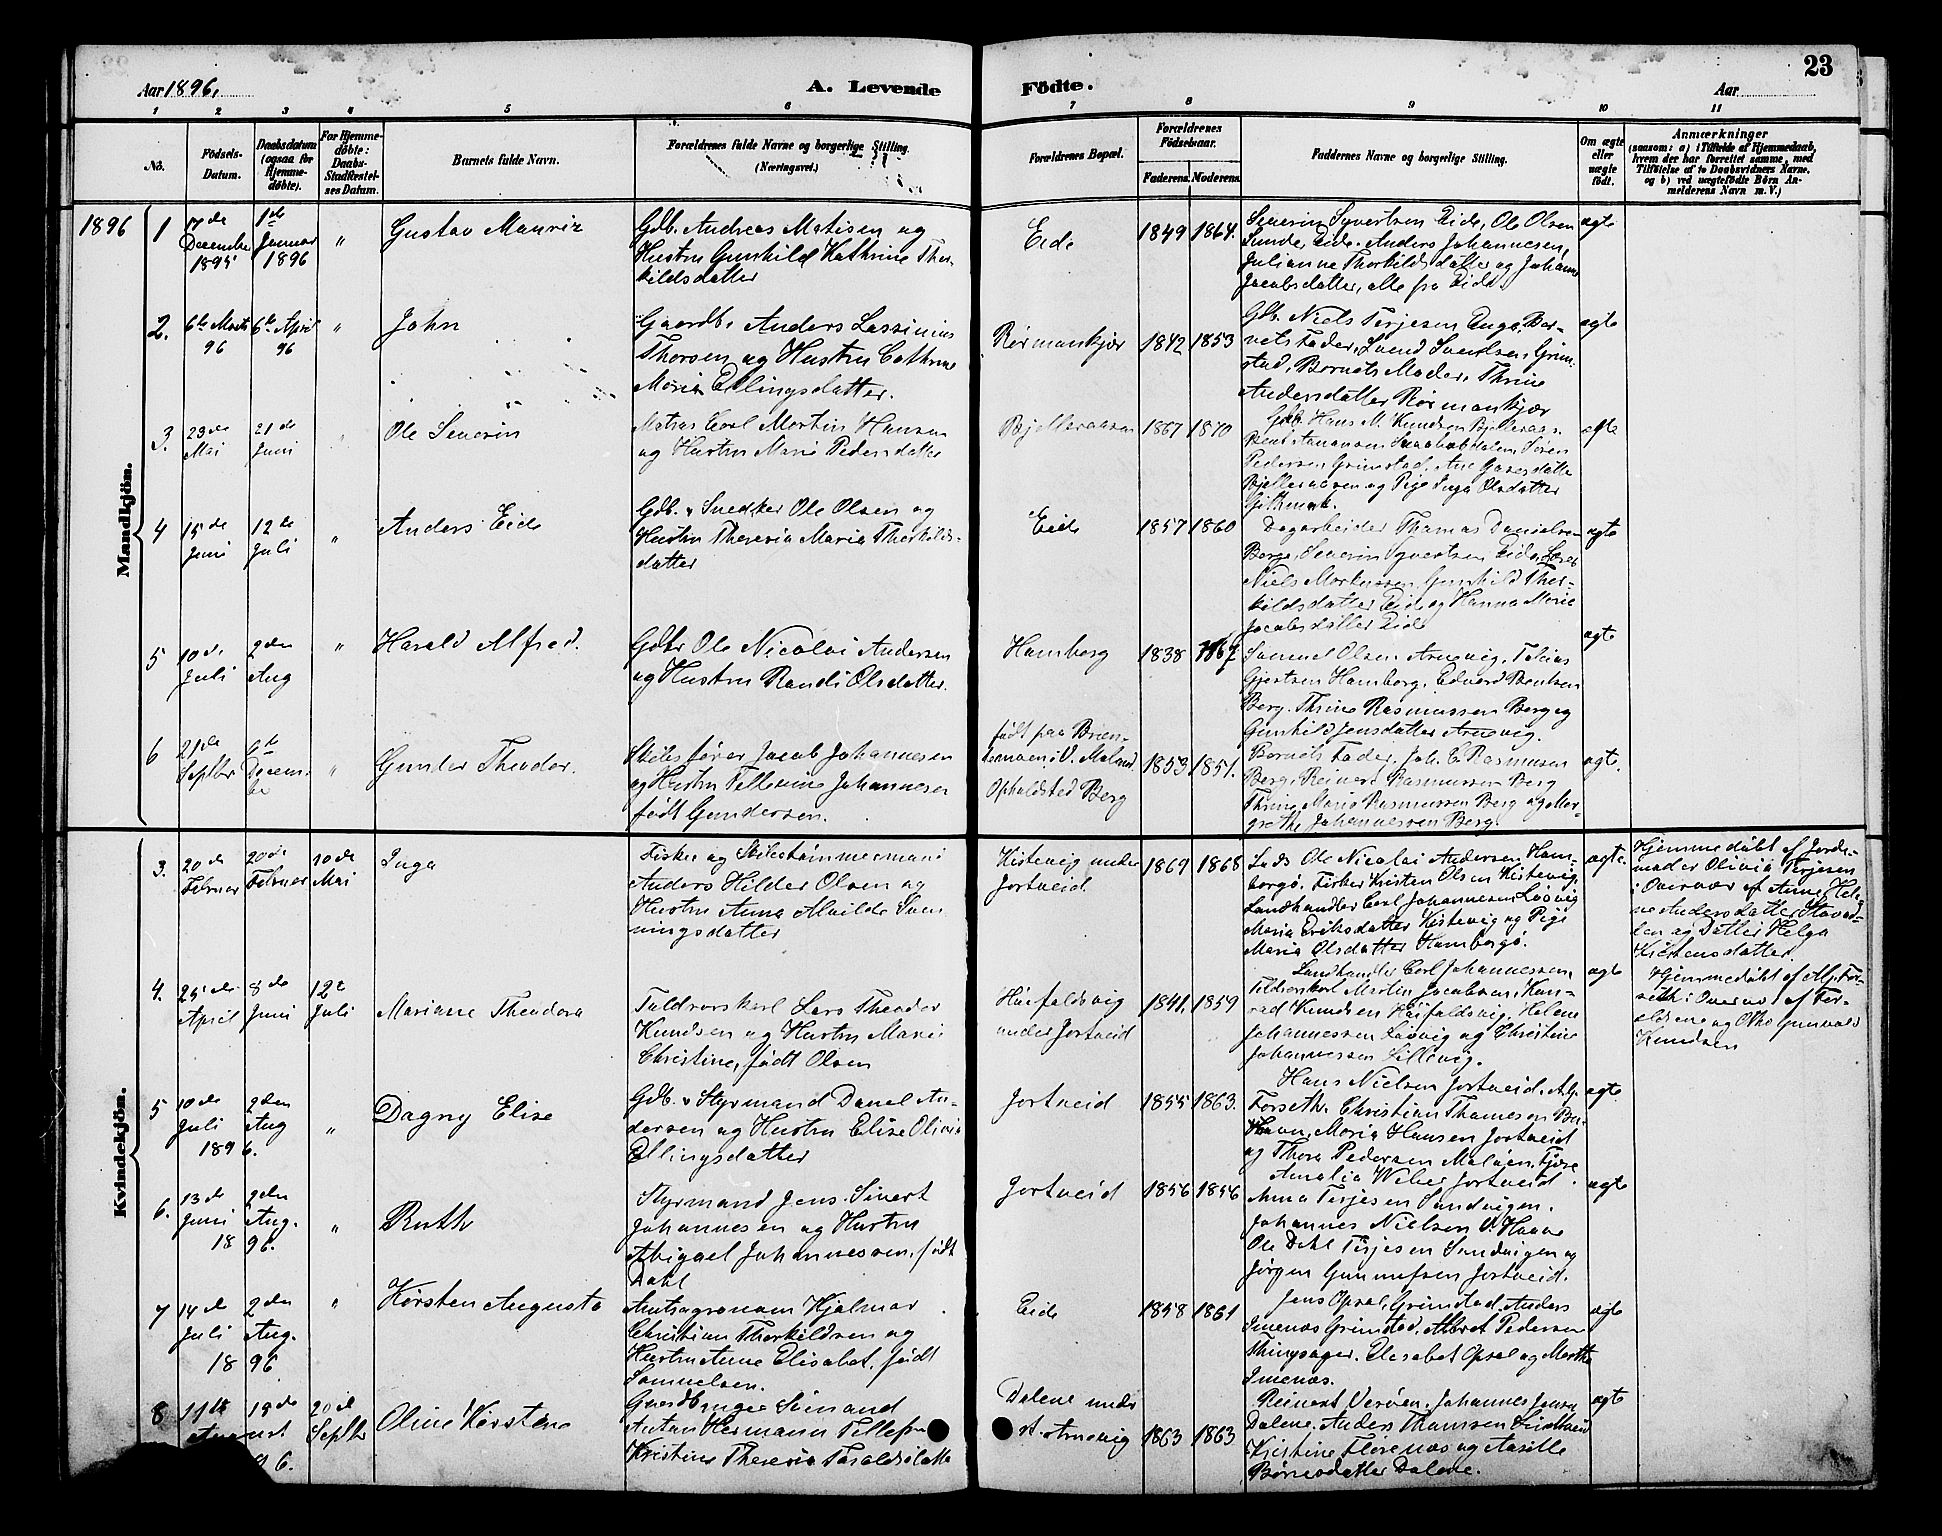 23
Aar 1896.
A. Levende
Födte.
Aar
1 2 3 4 5 6 7 8 9 10 11
No.
Födsels-
Datum.
Daabsdatum
(ogsaa for
Hjemme-
döbte).
For Hjemme-
döbte:
Daabs-
Stadfæstel-
ses Datum.
Barnets fulde Navn.
Forældrenes fulde Navne og borgerlige Stilling.
(Næringsvei.)
Forældrenes Bopæl.
Forældrenes
Födselsaar.
Faderens. Moderens.
Faddernes Navne og borgerlige Stilling.
Om ægte
eller
uægte
födt.
Anmærkninger
(saasom: a) i Tilfælde af Hjemmedaab,
hvem der har forrettet samme, med
Tilföielse af to Daabsvidners Navne,
og b) ved uægtefödte Börn An-
melderens Navn m. V.)
Mandkjön.
1896
1
7de
December
1895
1ste
Januar
1896
"
Gustav Mauriz
Gdb. Andreas Matisen og
Hustru Gunhild Kathrine Thor-
kildsdatter
Eide
1849 1864.
Severin Syvertsen Eide, Ole Olsen
Sunde, Eide. Anders Johannesen,
Julianne Thorkildsdatter og Johanne
Jacobsdatter, alle fra Eide.
ægte
2.
6te Marts
96
6te April
96
"
John
Gaardb. Anders Lassinius
Thorsen og Hustru Cathrine
Maria Ellingsdatter.
Rørmankjær
1842 1853
Gdb. Niels Terjesen Enge, Bar-
nets Fader, Svend Svendsen, Grim-
stad, Barnets Moder, Thrine
Andersdatter Rørmankjær
ægte
3.
23de
Mai
21de
Juni
"
Ole Severin
Matros Carl Martin Hansen
og Hustru Maria Pedersdatter
Bjelleraasen
1867 1870
Gdb. Hans M. Knudsen Bjelleraas.
Pedersen Grimstad, Ane
Bjelleraasen og Pige Inga Olsdatter
ægte
4
15de
Juni
12te
Juli
"
Anders Eide
Gdb. & Snedker Ole Olsen og
Hustru Theresia Maria Thorkilds-
datter
Eide
1857 1860
Dagarbeider Thomas Danielsen
Berge, Severin Syvertsen Eide, Lærer
Niels Markussen, Gunhild Thor-
kildsdatter Eide og Hanna Marie
Jacobsdatter Eide
ægte
5
10de
Juli
2den
Aug
"
Harald Alfred.
Gdbr Ole Nicolai Andersen
og Hustru Randi Olsdatter.
Hamborg
1838 1867
Samuel Olsen Arnevig, Tobias
Gjertsen Hamborg, Edvard Bentsen
Berg. Thrine Rasmussen Berg og
Gunhild Jensdatter Arnevig.
ægte
6
21de
Septbr
6te
Decem-
ber
"
Gunder Theodor.
Skibsfører Jacob Johannesen
og Hustru Tellesine Johannesen
født Gundersen.
født paa
i V.
Opholdsted Berg
1853 1851.
Barnets Fader, Joh. E. Rasmussen
Berg, Reinert Rasmussen Berg
Thrine Marie Rasmussen Berg og Mar-
grethe Johannessen Berg.
ægte.
Kvindekjön.
3.
20de
Februar
20de
Februar
10de
Mai
Inga
Fisker og Skibstømmermand
Anders Hilder Olsen og
Hustru Anna Alvilde Sven-
ningsdatter
Kistevig under
Jortveid
1869 1868
Lods Ole Nicolai Andersen Ham-
borgø. Fisker Kristen Olsen Kistevig,
Landhandler Carl Johannesen Løøvig
Maria Eriksdatter Kistevig og Pige
Maria Olsdatter Hamborgø.
ægte.
Hjemmedøbt af Jorde-
moder Olivia Terjesen
i Overvær af Anne Hele-
ne Andersdatter
og Datter Helga
Kristensdatter.
4.
25de
April
8de
Juni
12te
Juli
Mariane Theodora
Toldrorskarl Lars Theodor
Knudsen og Hustru Marie
Christine, født Olsen
Høifaldsvig
under Jortveid
1841. 1859
Landhandler Carl Johannessen,
Toldrorskarl Martin Jacobsen, Kon-
rad Knudsen Høifaldsvig, Helene
Johannessen Løøvig og Christine
Johannessen Lillevig.
ægte
Hjemmedøbt af Alf. For-
seth i Overvær af For-
ældrene og Otto Gunvald
Knudsen
5
10de
Juli
1896.
2den
Aug
"
Dagny Elise
Gdb. & Styrmand Danel An-
dersen og Hustru Elise Olivia
Ellingsdatter
Jortveid
1855 1863.
Hans Nielsen Jortveid, Alf.
Forseth. Christian Thomesen
Maria Hansen Jortveid
og Thora Pedersen Maløen, Fjære
ægte
6.
13de
Juni
1896.
2den
Aug.
"
Ruth
Styrmand Jens Sivert
Johannesen og Hustru
Abigael Johannessen, født
Dahl
Jortveid
1856 1856
Amalia Weber Jortveid.
Anna Terjesen Sandvigen.
Johannes Nielsen V. Haave
Ole Dahl Terjesen Sandvigen og
Jørgen Gunnufsen Jortveid.
ægte
7
14de
Juli
1896
2den
Aug.
"
Kirsten Augusta
Amtsagronom Hjalmar
Christian Thorkildsen og
Hustru Anne Elisabet, født
Samuelsen.
Eide
1858 1861
Jens Opsal, Grimstad, Anders
Imenæs Grimstad, Albret Pedersen
Thingsager. Elisabet Opsal og Martha
Imenæs.
ægte
8
11te
August
96.
19de
20de
Septbr
Oline Kirstene
Gaardbruger Sømand
Antan Hermann Tellefsen
Kristine Theresia Taraldsdatter
Dalene under
st. Arnevig
1863 1863
Reinert Verøen, Johannes Jensen
Dalene, Anders Thomsen
Kristine Florenæs og Aaselle
Børresdatter Dalene.
ægte